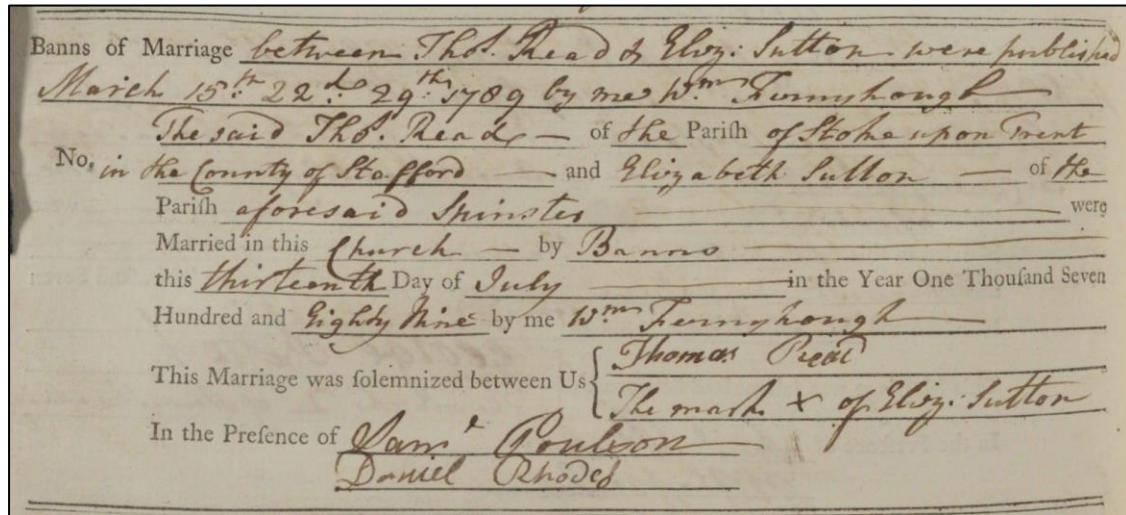 Banns of Marriage between Thos. Read & Eliz: Sutton were published
March 15th. 22d. 29th. 1789 by me Wm Fernyhough
The said Thos. Read of the Pariſh of Stoke upon Trent
No. in the County of Stafford and Elizabeth Sutton of the
Pariſh aforesaid Spinster were
Married in this Church by Banns
this thirteenth Day of July in the Year One Thouſand Seven
Hundred and Eighty Nine by me Wm Fernyhough
This Marriage was ſolemnized between Us Thomas Read
The mark x of Eliz: Sutton
In the Preſence of Saml Poulson
Daniel Rhodes